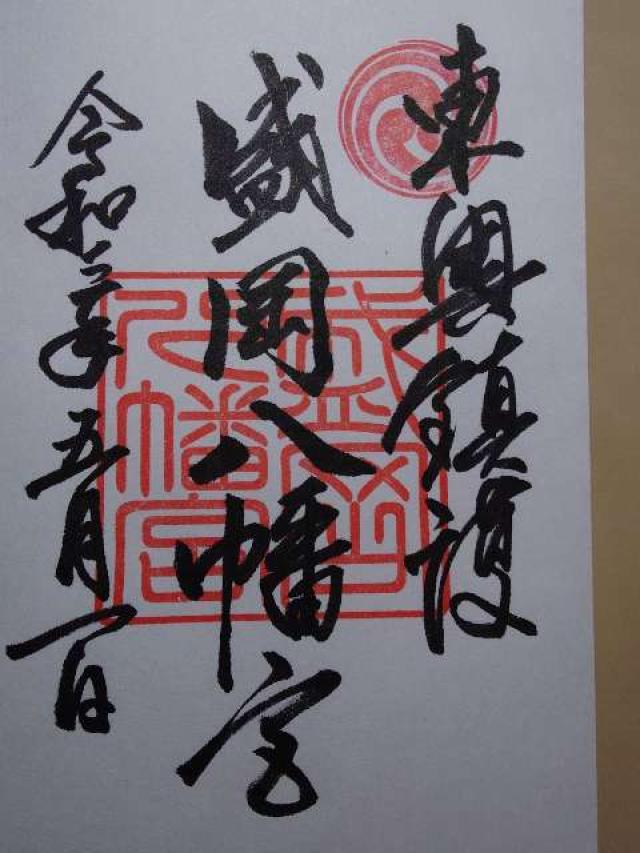 東奥鎮護
盛岡八幡宮
令和元年五月一日
盛岡
八幡宮